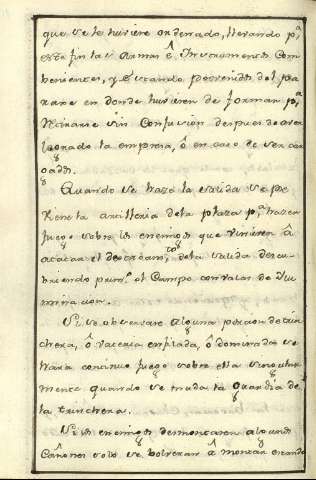 que se le huviere ordenado, llevando p.ª
este fin las Armas ê Instrumentos Com
benientes, y Estando prevenidos del pa
raxe en donde huvieren de formar p.ª
Retirarse sin Confusion despues de aver
logrado la empresa, ô en caso de ser car
gados.
Quando se haze la salida se pre
viene la artilleria de la plaza p.ª hazer
fuego sobre los enemigos que vinieren â
atacar el destacam.to de la salida descu
briendo prim.º el Campo con valas de Ilu
minacion.
Si se observare alguna porcion de trin
chera, ô vateria enfilada, ô dominada se
hara continuo fuego sobre ella singular
mente quando se muda la Guardia de
la trinchera.
Si los enemigos desmontaren algunos
Cañones solo se bolveran â montar